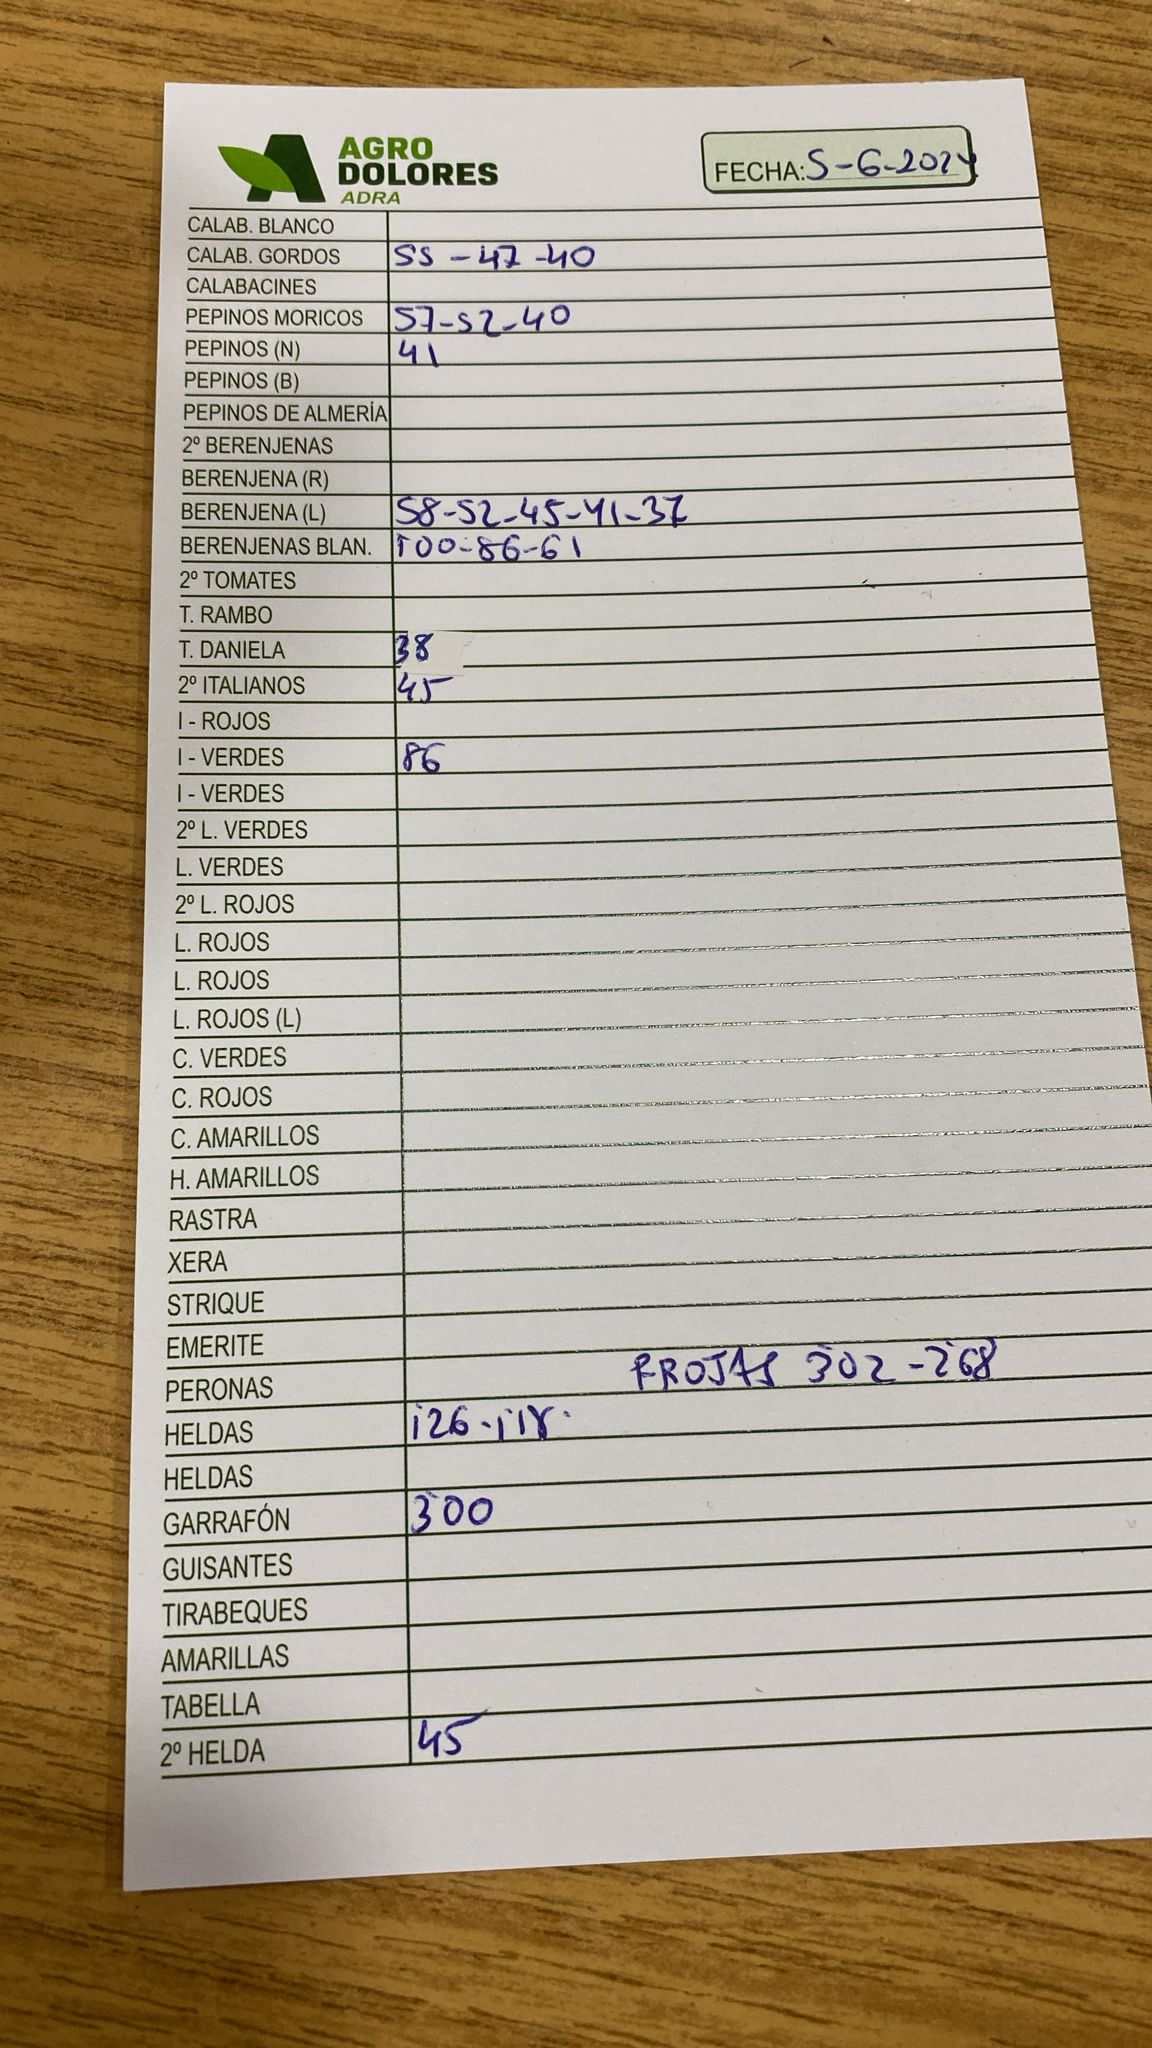 AGRO
DOLORES
ADRA
FECHA: 5-6-2024
CALAB. BLANCO
CALAB. GORDOS 55-47-40
CALABACINES
PEPINOS MORICOS 57-52-40
PEPINOS (N) 41
PEPINOS (B)
PEPINOS DE ALMERÍA
2º BERENJENAS
BERENJENA (R)
BERENJENA (L) 58-52-45-41-37
BERENJENAS BLAN. 100-86-61
2º TOMATES
T. RAMBO
T. DANIELA 38
2º ITALIANOS 45
I - ROJOS
I - VERDES 86
I - VERDES
2º L. VERDES
L. VERDES
2º L. ROJOS
L. ROJOS
L. ROJOS
L. ROJOS (L)
C. VERDES
C. ROJOS
C. AMARILLOS
H. AMARILLOS
RASTRA
XERA
STRIQUE
EMERITE
PERONAS ROJAS 302-268
HELDAS 126-118.
HELDAS
GARRAFÓN 300
GUISANTES
TIRABEQUES
AMARILLAS
TABELLA
2º HELDA 45